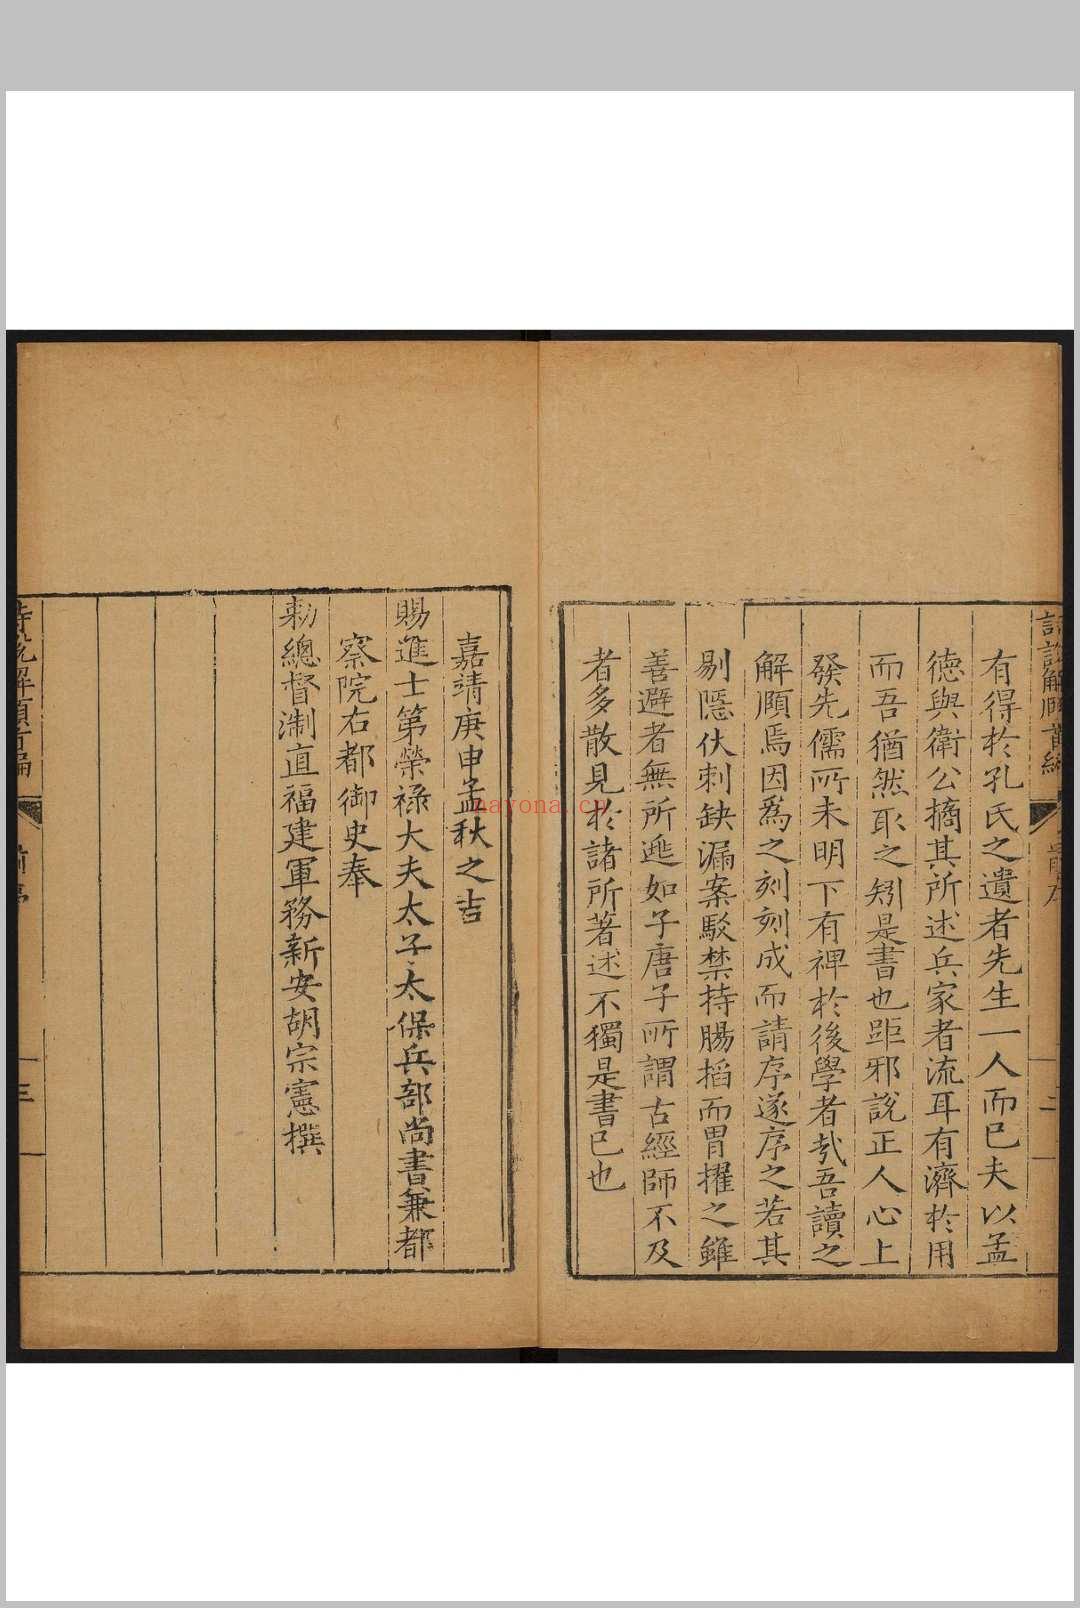 有得於孔氏之遺者先生一人而已夫以孟
德與衛公摘其所述兵家者流耳有濟於用
而吾猶然取之矧是書也距邪說正人心上
發先儒所未明下有裨於後學者哉吾讀之
解頤焉因爲之刻刻成而請序遂序之若其
剔隱伏刺缺漏案駁禁持腸搯而胃擢之雖
善避者無所遁如子唐子所謂古經師不及
者多散見於諸所著述不獨是書已也
二
嘉靖庚申孟秋之吉
賜進士第榮祿大夫太子太保兵部尚書兼都
察院右都御史奉
勑總督淛直福建軍務新安胡宗憲撰
三
nayona.cn